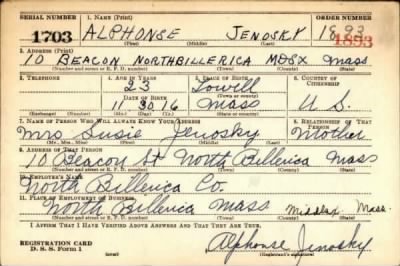 SERIAL NUMBER 1. NAME (Print) ORDER NUMBER
1703 ALPHONSE JENOSKY 1893
(First) (Middle) (Last) 1893
2. ADDRESS (Print)
10 BEACON NORTHBILLERICA MDSX Mass
(Number and street or R. F. D. number) (Town) (County) (State)
3. TELEPHONE 4. AGE IN YEARS 5. PLACE OF BIRTH 6. COUNTRY OF CITIZENSHIP
23 Lowell
DATE OF BIRTH (Town or county)
11 30 16 Mass U S.
(Exchange) (Number) (Mo.) (Day) (Yr.) (State or country)
7. NAME OF PERSON WHO WILL ALWAYS KNOW YOUR ADDRESS 8. RELATIONSHIP OF THAT PERSON
Mrs Susie Jenosky Mother
(Mr., Mrs., Miss) (First) (Middle) (Last)
9. ADDRESS OF THAT PERSON
10 Beacon St North Billerica Mass
(Number and street or R. F. D. number) (Town) (County) (State)
10. EMPLOYER'S NAME
North Billerica Co.
11. PLACE OF EMPLOYMENT OR BUSINESS
North Billerica Mass Middlsx Mass.
(Number and street or R. F. D. number) (Town) (County) (State)
I AFFIRM THAT I HAVE VERIFIED ABOVE ANSWERS AND THAT THEY ARE TRUE.
REGISTRATION CARD Alphonse Jenosky
D. S. S. Form 1 (Registrant's signature)